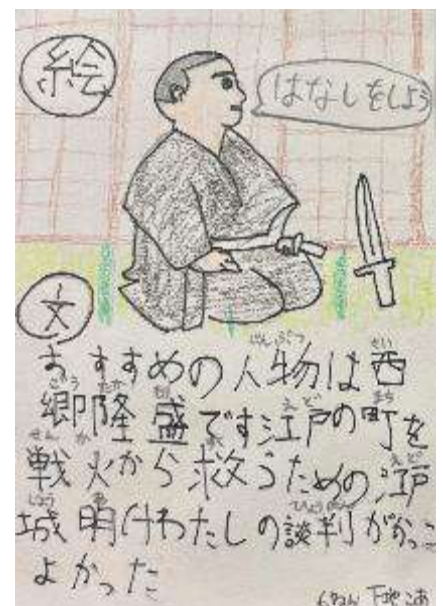 絵
はなしをしよう
文
おすすめの人物は西
郷隆盛です江戸の町を
戦火から救うための江戸
城明けわたしの談判がかっこ
よかった